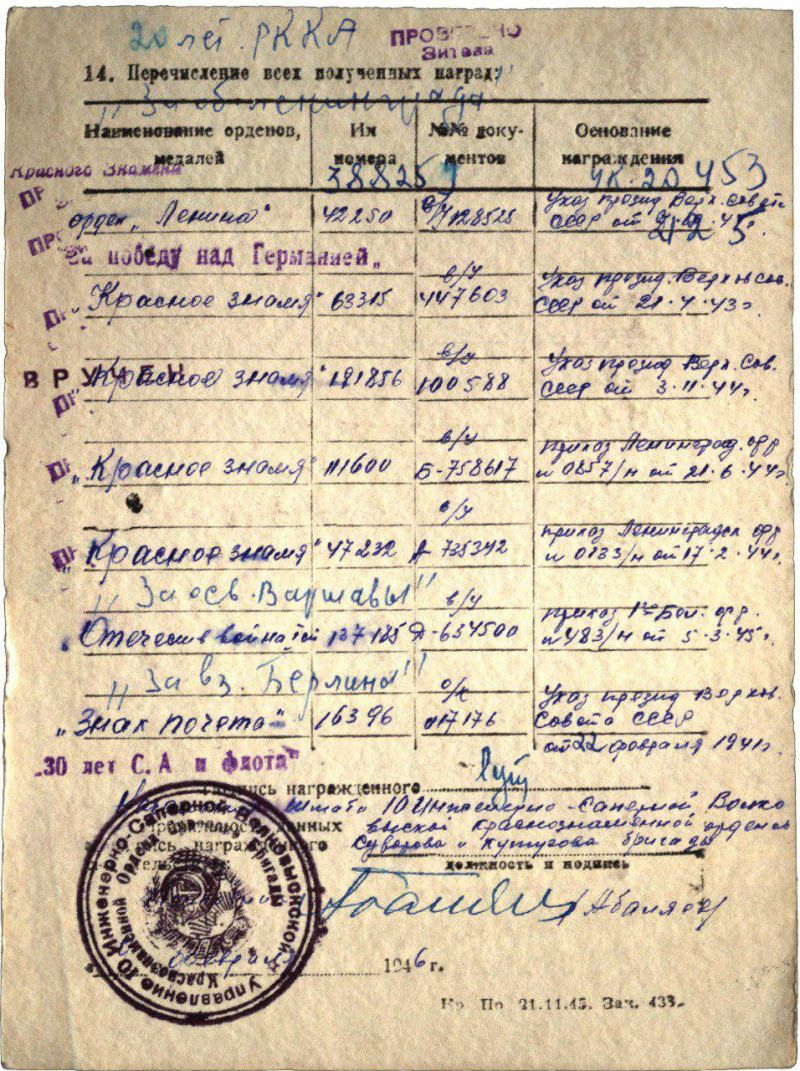 20 лет. РККА
ПРОВЕРЕНО
14. Перечисление всех полученных наград:
„За об. Ленинграда
Наименование орденов, медалей
Их номера
№№ доку-ментов
Основание награждения
Красного Знамени 388259 УК. 20453
орден „Ленина" 42250 128528 Указ презид Верх. Совета
СССР от
За победу над Германией„
„Красное знамя" 63315 в/у 447603 Указ презид. Верховн сов.
СССР от 21.4.43г.
ВРУЧЕН
„Красное знамя" 191856 в/у 100588 Указ презид Верх. Сов.
СССР от 3.11.44г.
„Красное знамя" 111600 в/у Б-758617 приказ Ленинград. фр
№ 0857/н от 21.6.44г.
„Красное знамя" 47232 о/у А 735342 приказ Ленинградск фр
№ 0133/н от 17.2.44г.
„За осв. Варшавы"
„Отечествен война Iст 137185 в/у Д-634500 приказ 1го Бел. фр.
№ 483/н от 5.3.45г.
„За вз. Берлина"
„Знак почета" 16396 о/к 017176 Указ презид Верхов.
Совета СССР
от 22 февраля 1941г.
„30 лет С.А и флота"
Подпись награжденного
штаба 10 Инженерно-Саперной Волко
выской краснознаменной орденов
Суворова и Кутузова бригады
должность и подпись
Управление 10 Инженерно-Саперной Волковысской
Краснознаменной Орденов
бригады
февраля 1946 г.
21.11.45. Зак. 433.